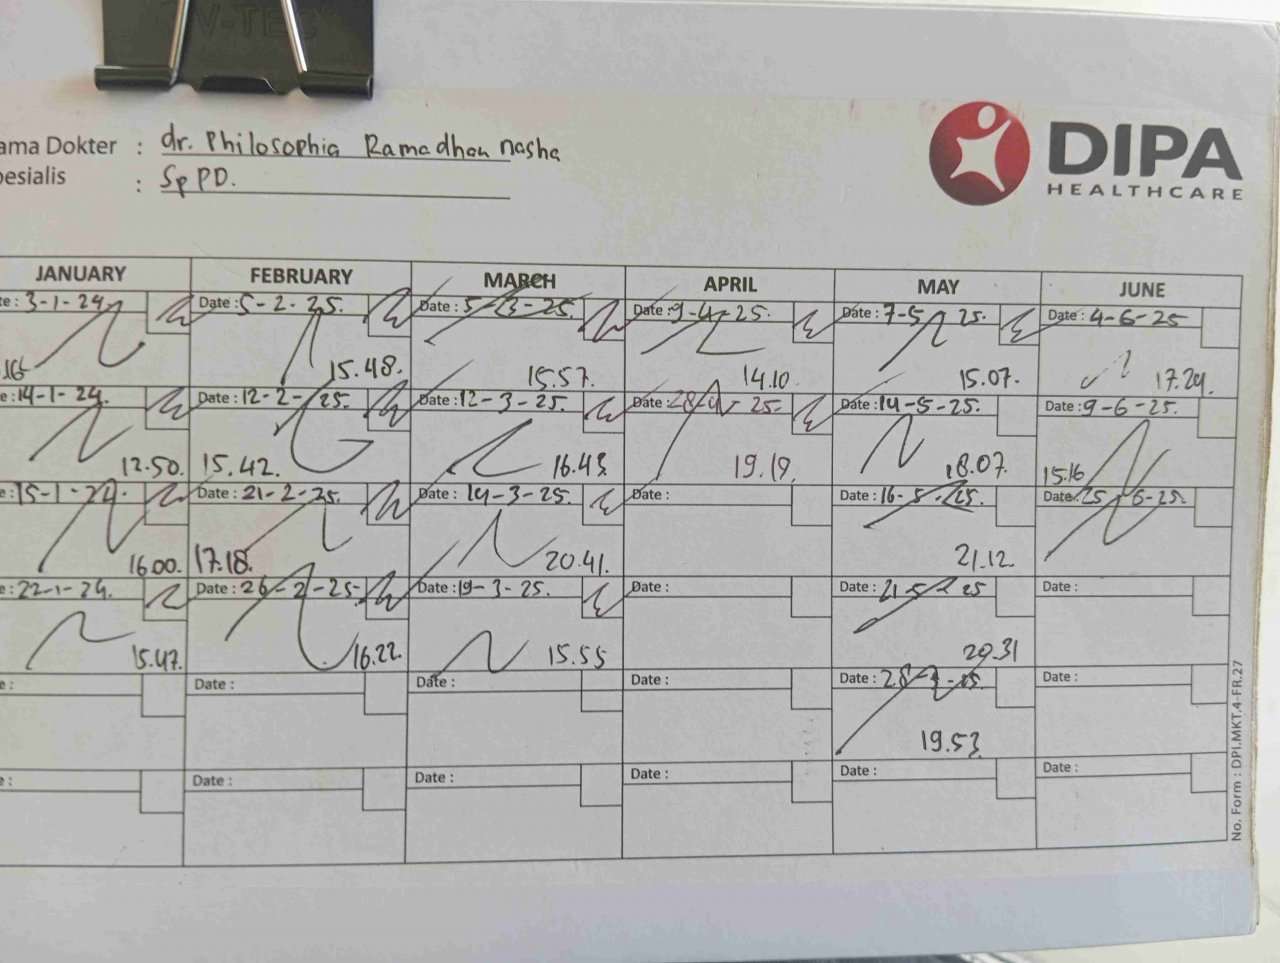 V-TEC
ama Dokter : dr. Philosophia Ramadhan nasha
pesialis : SpPD.
DIPA
HEALTHCARE
JANUARY FEBRUARY MARCH APRIL MAY JUNE
te : 3-1-24. Date : 5-2-25. Date : 5-3-25. Date : 9-4-25. Date : 7-5-25. Date : 4-6-25
.16 15.48. 15.57. 14.10 15.07. 17.29.
e : 14-1-24. Date : 12-2-25. Date : 12-3-25. Date : 28-4-25. Date : 14-5-25. Date : 9-6-25.
12.50. 15.42. 16.43 19.19. 18.07. 15.16
e : 15-1-24. Date : 21-2-25. Date : 14-3-25. Date : Date : 16-5-25. Date : 25-6-25.
16.00. 17.18. 20.41. 21.12.
e : 22-1-24. Date : 26-2-25. Date : 19-3-25. Date : Date : 21-5-25 Date :
15.47. 16.22. 15.55 20.31
e : Date : Date : Date : Date : 28-5-25. Date :
19.53.
e : Date : Date : Date : Date : Date :
No. Form : DPI.MKT.4-FR.27